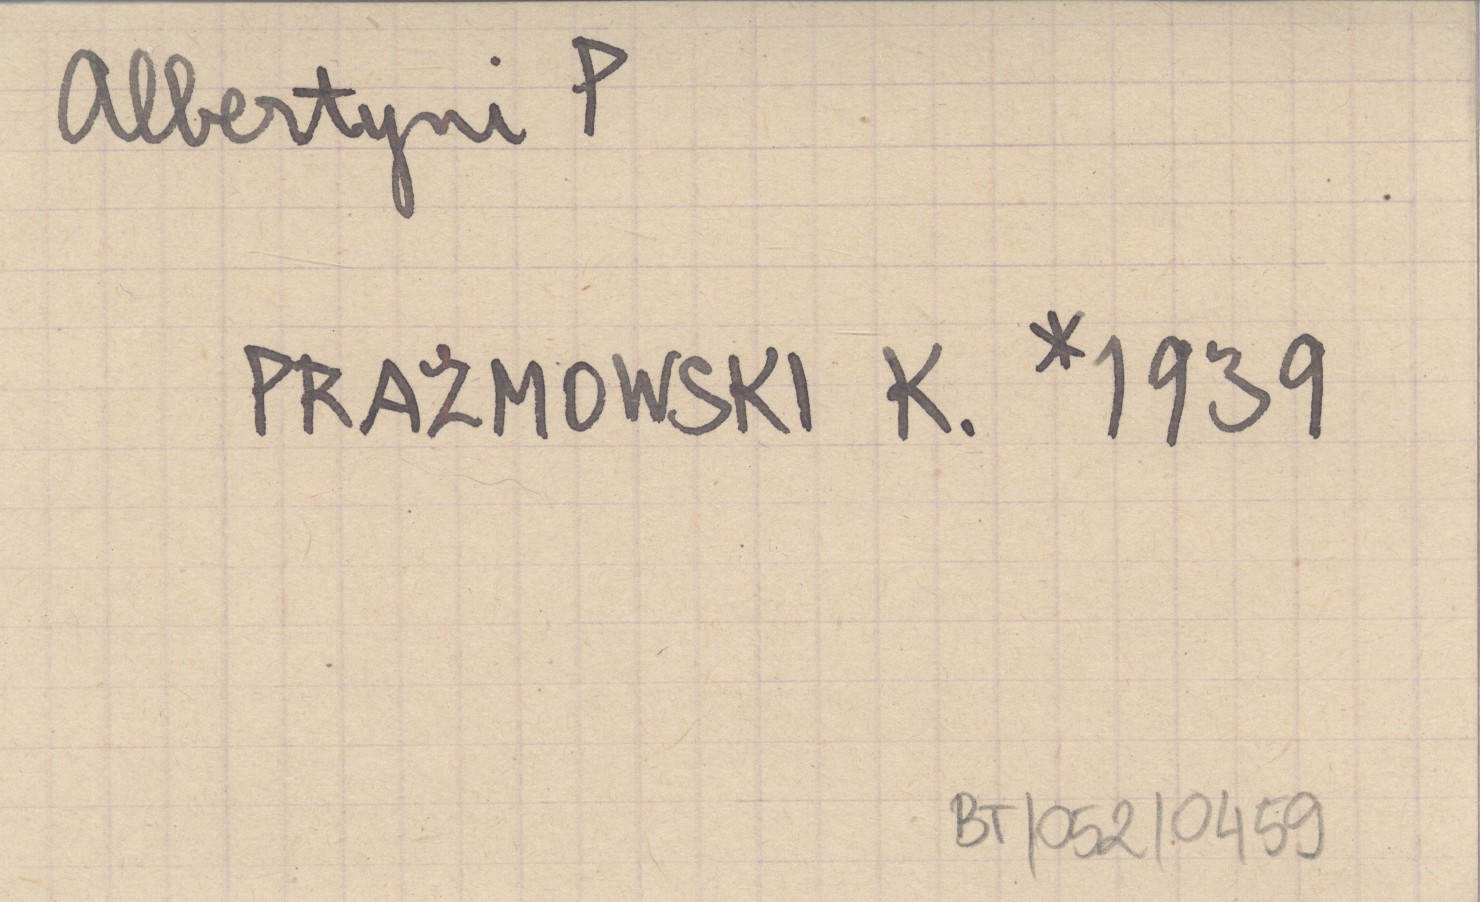 Albertyni P
PRAŻMOWSKI K. *1939
BT/052/0459